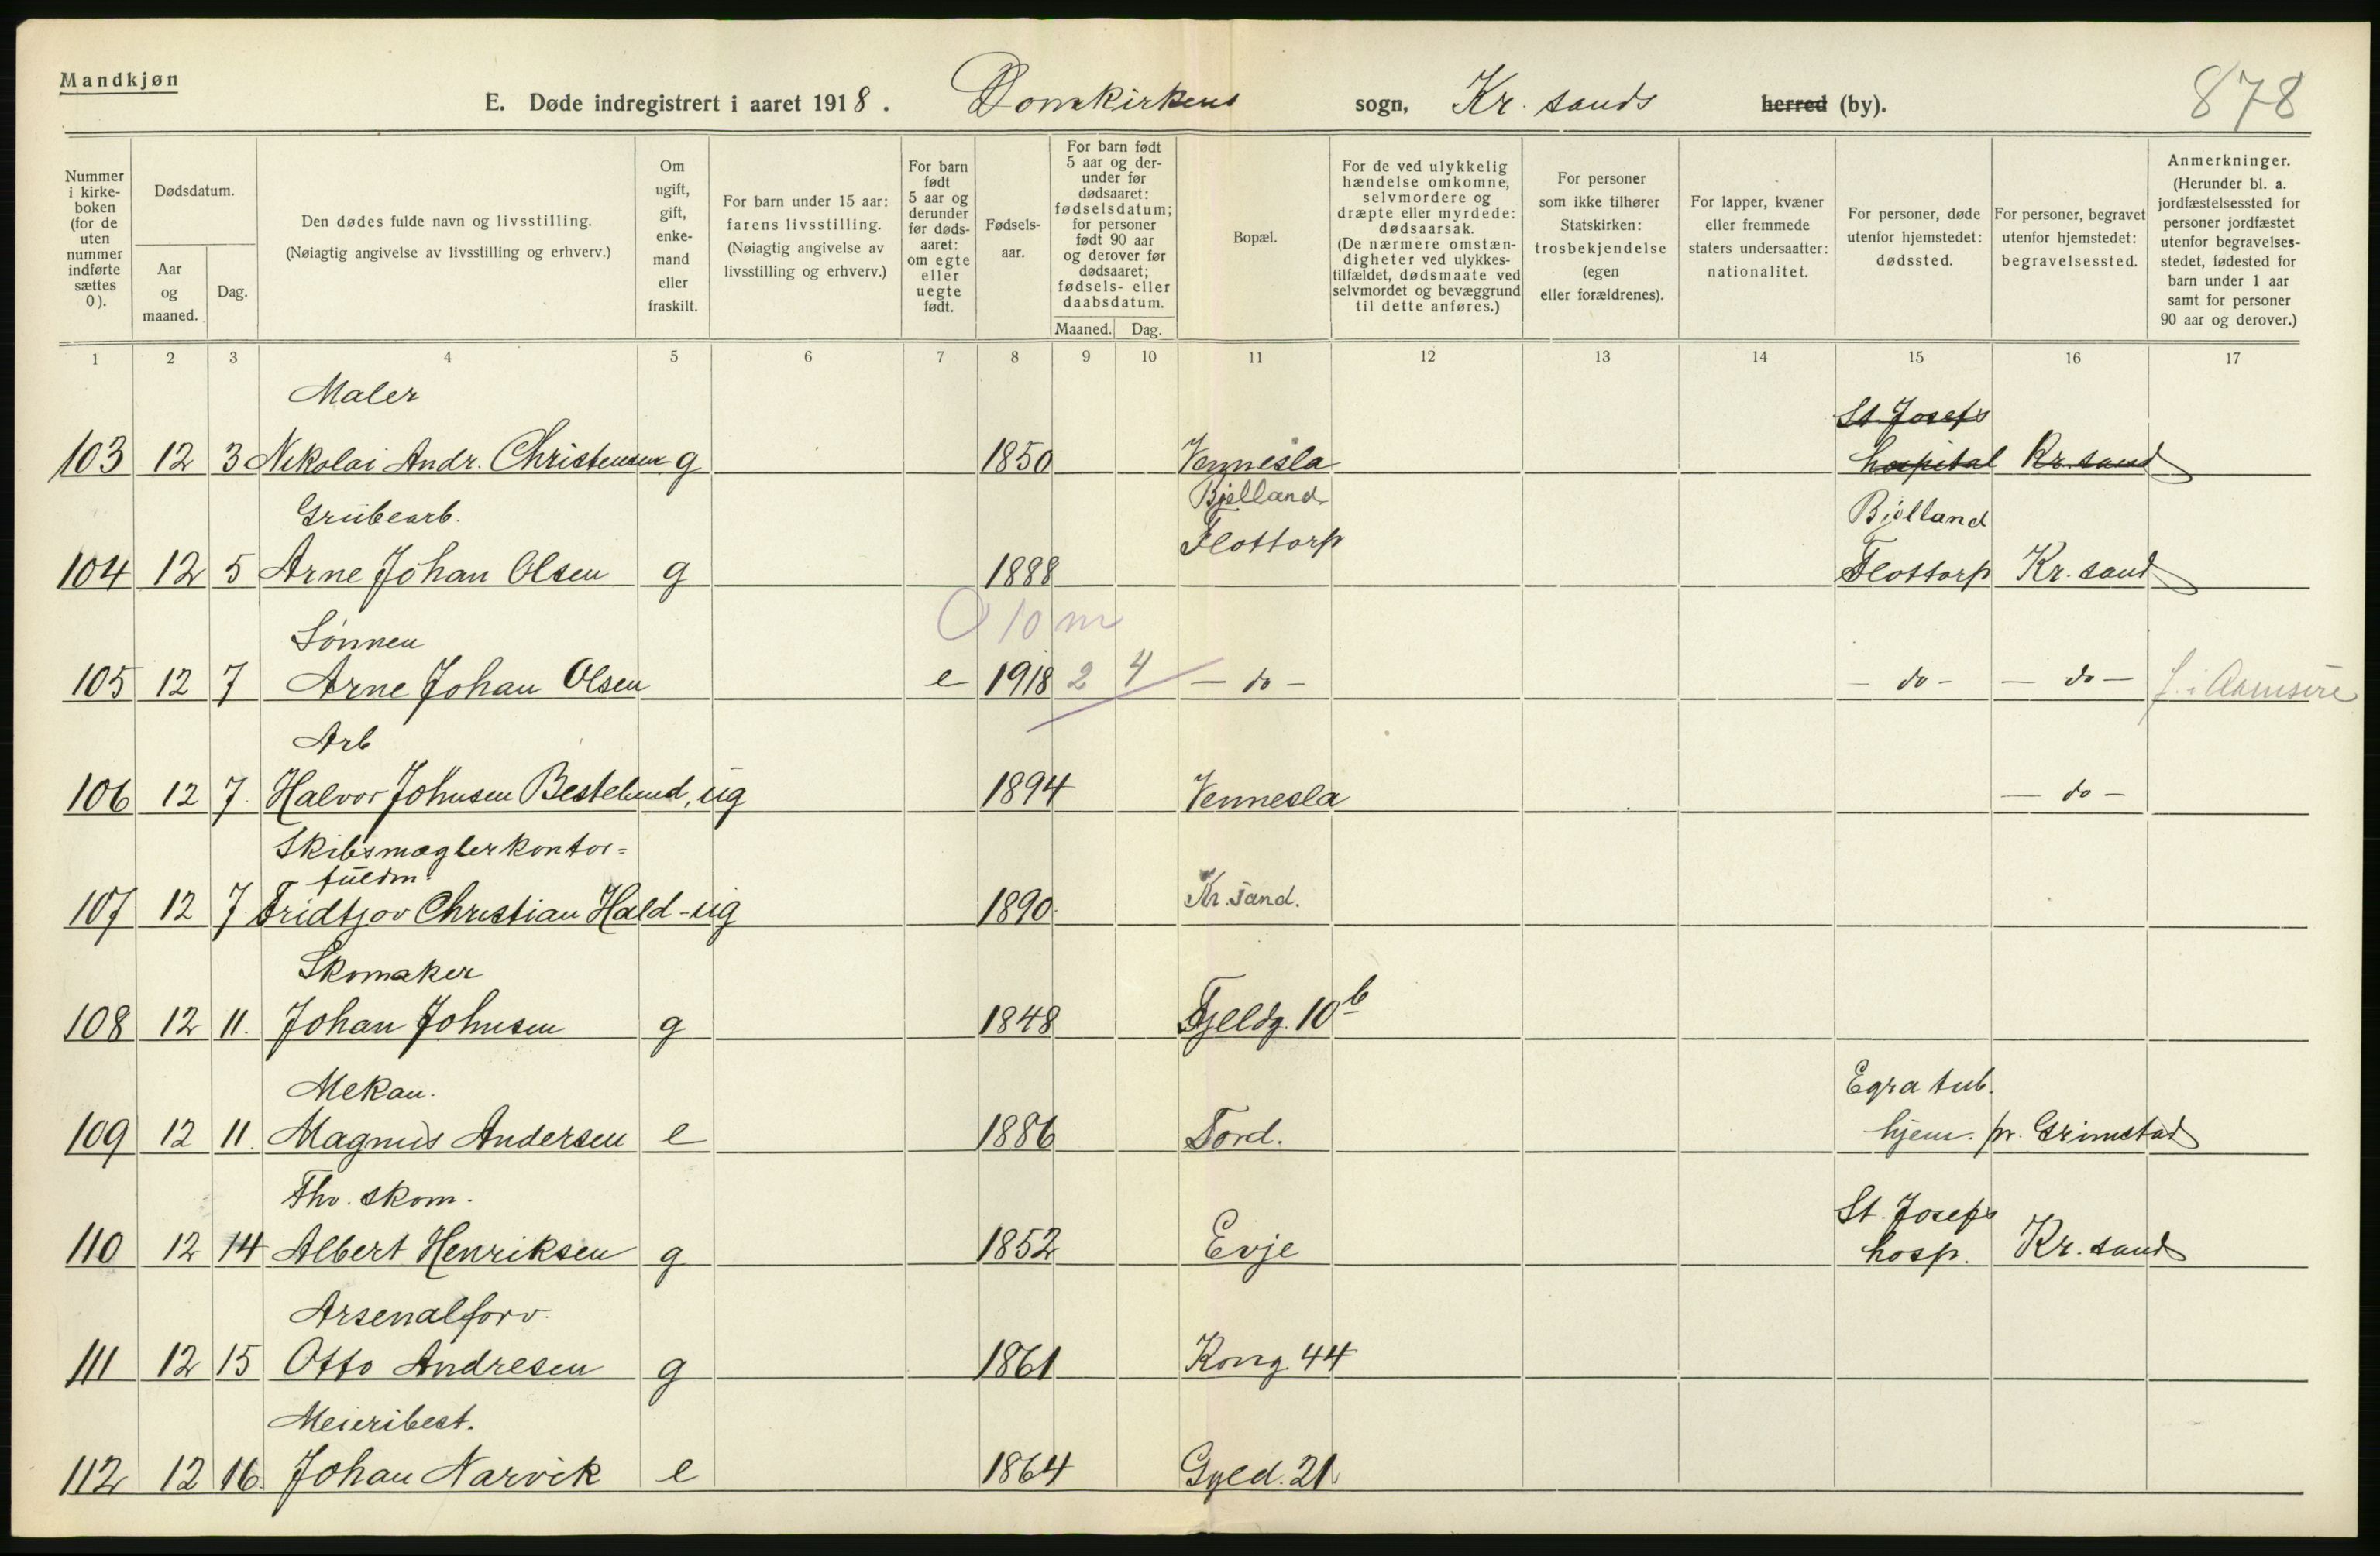 Mandkjøn
E. Døde indregistrert i aaret 1918. Domkirkens sogn, Kr. sands herred (by). 878
Nummer i kirke-boken (for de uten nummer indførte sættes 0).
Dødsdatum.
Aar og maaned.
Dag.
Den dødes fulde navn og livsstilling.
(Nøiagtig angivelse av livsstilling og erhverv.)
Om ugift, gift, enke-mand eller fraskilt.
For barn under 15 aar: farens livsstilling. (Nøiagtig angivelse av livsstilling og erhverv.)
For barn født 5 aar og derunder før døds-aaret: om egte eller uegte født.
Fødsels-aar.
For barn født 5 aar og der-under før dødsaaret: fødselsdatum; for personer født 90 aar og derover før dødsaaret; fødsels- eller daabsdatum.
Maaned. Dag.
Bopæl.
For de ved ulykkelig hændelse omkomne, selvmordere og dræpte eller myrdede: dødsaarsak. (De nærmere omstæn-digheter ved ulykkes-tilfældet, dødsmaate ved selvmordet og bevæggrund til dette anføres.)
For personer som ikke tilhører Statskirken: trosbekjendelse (egen eller forældrenes).
For lapper, kvæner eller fremmede staters undersaatter: nationalitet.
For personer, døde utenfor hjemstedet: dødssted.
For personer, begravet utenfor hjemstedet: begravelsessted.
Anmerkninger. (Herunder bl. a. jordfæstelsessted for personer jordfæstet utenfor begravelses-stedet, fødested for barn under 1 aar samt for personer 90 aar og derover.)
1 2 3 4 5 6 7 8 9 10 11 12 13 14 15 16 17
Maler St. Josefs
103 12 3 Nikolai Andr. Christensen g 1850 Vennesla hospital Kr. sand
Grubearb. Bjelland Bjelland
104 12 5 Arne Johan Olsen g 1888 Flottorp Flottorp Kr. sand
Sønnen 0 10 m
105 12 7 Arne Johan Olsen e 1918 2 4 - do - - do - - do - f. i
Arb
106 12 7. Halvor Johnsen ug 1894 Vennesla - do -
Skibsmæglerkontor=
fuldm.
107 12 7 Fridtjov Christian Hald - ug 1890. Kr. sand.
Skomaker
108 12 11. Johan Johnsen g 1848 Fjeldg. 10 b
Mekan. Egra tub.
109 12 11. Magnus Andersen e 1886 Tord. hjem. pr. Grimstad
Fhv. skom. St. Josefs
110 12 14 Albert Henriksen g 1852 Evje hosp. Kr. sand
Arsenalforv.
111 12 15 Otto Andresen g 1861 Kong. 44
Meieribest.
112 12 16. Johan Narvik e 1864 Gyld. 21.